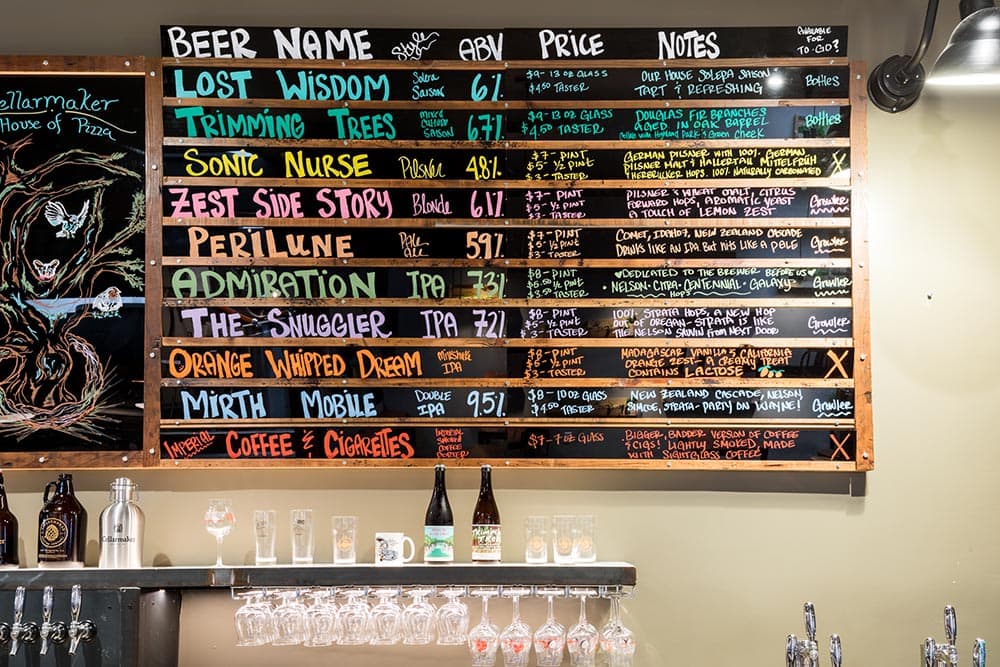 Cellarmaker
House of Pizza
BEER NAME Style ABV PRICE NOTES AVAILABLE FOR TO-GO?
LOST WISDOM Solera Saison 6% $9- 13 OZ GLASS $4.50 TASTER OUR HOUSE SOLERA SAISON TART & REFRESHING Bottles
TRIMMING TREES MIXED CULTURE SAISON 6.7% $9-13 OZ GLASS $4.50 TASTER DOUGLAS FIR BRANCHES AGED IN OAK BARREL Collab with Highland Park & Green Cheek Bottles
SONIC NURSE Pilsner 4.8% $7- PINT $5- 1/2 PINT $3- TASTER GERMAN PILSNER WITH 100% GERMAN PILSNER MALT & HALLERTAU MITTELFRÜH HERSBRUCKER HOPS. 100% NATURALLY CARBONATED X
ZEST SIDE STORY Blonde 6.1% $7- PINT $5- 1/2 PINT $3- TASTER PILSNER & WHEAT MALT, CITRUS FORWARD HOPS, AROMATIC YEAST A TOUCH OF LEMON ZEST Growler
PERILUNE Pale Ale 5.9% $7- PINT $5- 1/2 PINT $3- TASTER COMET, IDAHO7, NEW ZEALAND CASCADE DRINKS LIKE AN IPA BUT HITS LIKE A PALE Growler
ADMIRATION IPA 7.3% $8- PINT $5.50 1/2 PINT $3- TASTER DEDICATED TO THE BREWER BEFORE US NELSON- CITRA- CENTENNIAL- GALAXY HOPS Growler
THE SNUGGLER IPA 7.2% $8- PINT $5- 1/2 PINT $3- TASTER 100% STRATA HOPS, A NEW HOP OUT OF OREGAN- STRATA IS LIKE THE NELSON SAUVIN FROM NEXT DOOR Growler
ORANGE WHIPPED DREAM MILKSHAKE IPA $8- PINT $5- 1/2 PINT $3- TASTER MADAGASCAR VANILLA & CALIFORNIA ORANGE ZEST- A CREAMY TREAT CONTAINS LACTOSE X
MIRTH MOBILE DOUBLE IPA 9.5% $8 - 10 OZ GLASS $4.50 TASTER NEW ZEALAND CASCADE, NELSON SIMCOE, STRATA- PARTY ON WAYNE! Growler
IMPERIAL COFFEE & CIGARETTES IMPERIAL SMOKED COFFEE PORTER $7-7 OZ GLASS BIGGER, BADDER VERSION OF COFFEE & CIGS! LIGHTLY SMOKED, MADE WITH SIGHTGLASS COFFEE X
Cellarmaker